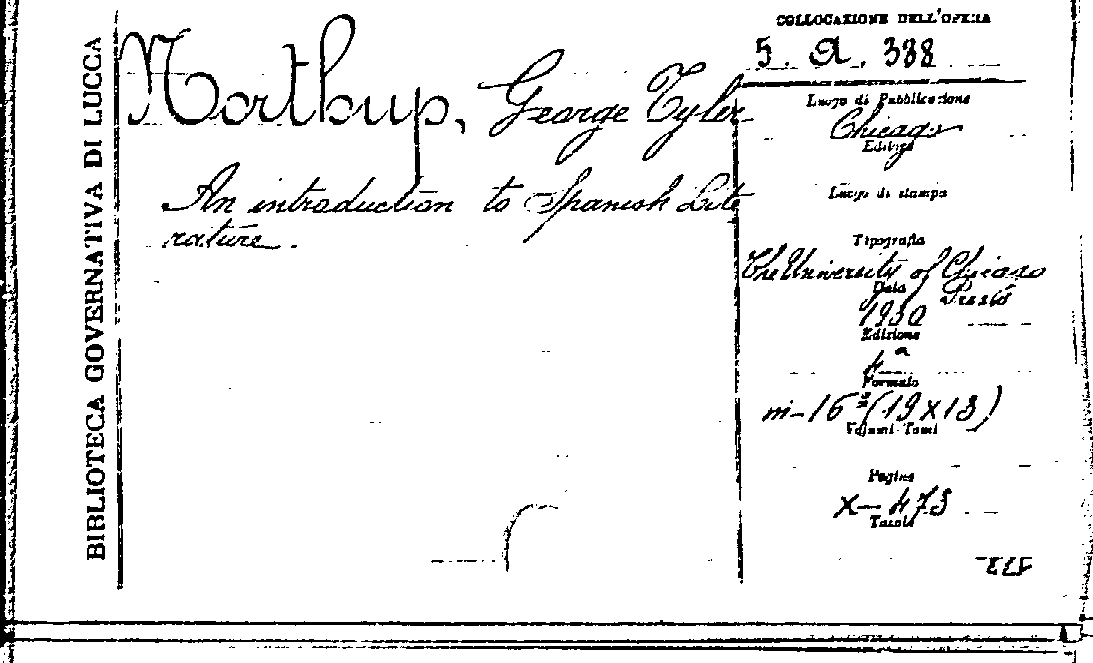 BIBLIOTECA GOVERNATIVA DI LUCCA
Northup, George Tyler
An introduction to Spanish Lite
rature.
COLLOCAZIONE DELL'OPERA
5. A. 388
Luogo di Pubblicazione
Chicago
Editore
Luogo di stampa
Tipografia
The University of Chicago
Press
Data
1930
Edizione
4ª
Formato
in-16° (19x13)
Volumi-Tomi
Pagine
X-473
Tavole